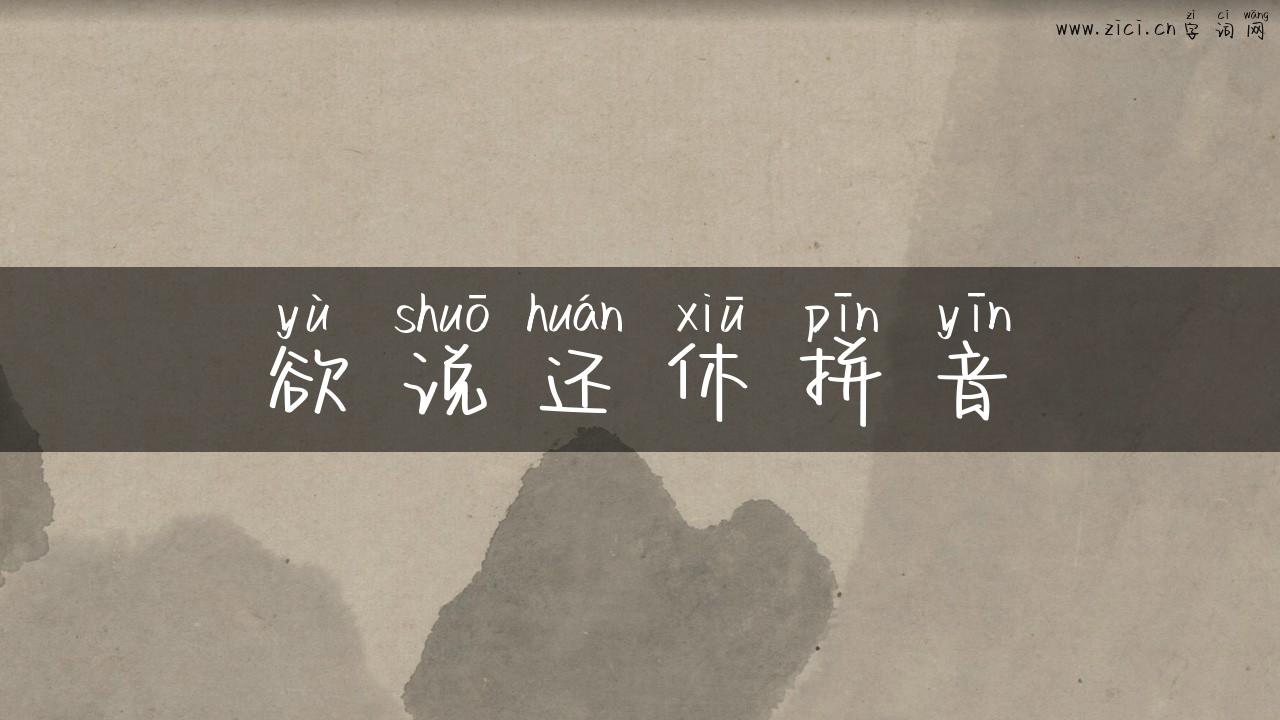 zì cí wǎng
www.zici.cn 字词网
yù shuō huán xiū pīn yīn
欲说还休拼音